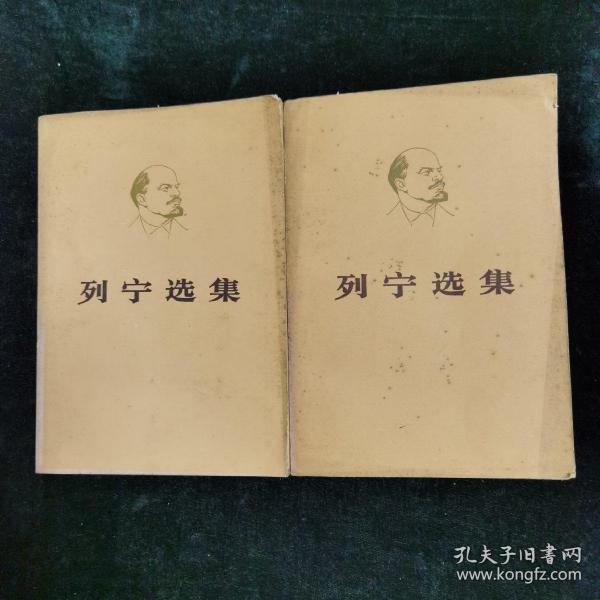 列宁选集
列宁选集
孔夫子旧書网
www.kongfz.com